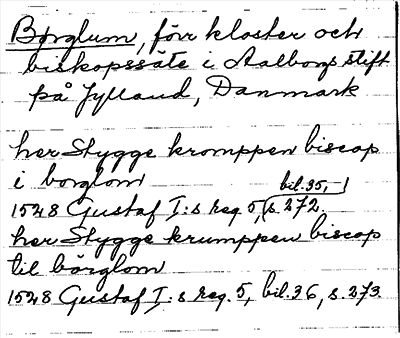 Børglum, förr kloster och
biskopssäte i Aalborgs stift
på Jylland, Danmark
her Stygge kromppen biscop
i borglom
bil. 35,
1528 Gustaf I:s reg. 5, s. 272.
her Stygge krumppen biscop
til börglom
1528 Gustaf I:s reg. 5, bil. 36, s. 273.